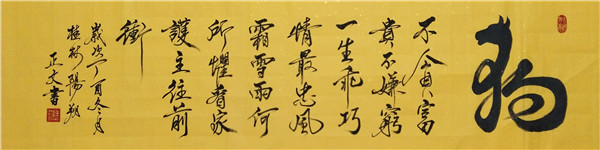 狗
不貪富
貴不嫌窮
一生乖巧
情最忠風
霜雪雨何
所懼看家
護主往前
衝
歲次丁酉冬月
桂林陽朔
正文書